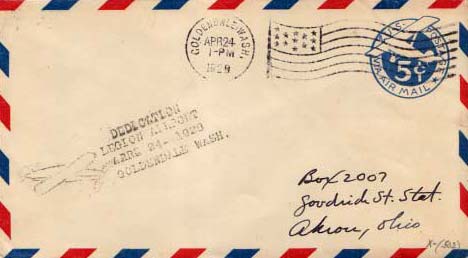 GOLDENDALE, WASH.
APR 24
1-PM
1929
U.S. POSTAGE
5¢
VIA AIR MAIL
DEDICATION
LEGION AIRPORT
24- 1929
GOLDENDALE WASH.
Box 2007
Goodrich St. Stat.
Akron, Ohio